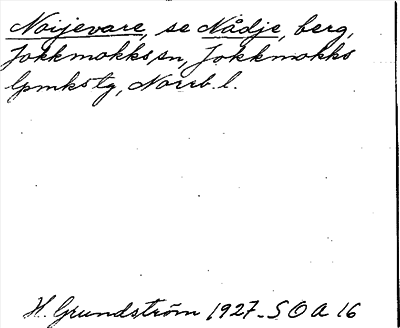 Noijevare, se Nådje, berg,
Jokkmokks sn, Jokkmokks
lpmkstg, Norrb. l.
H. Grundström 1927. S O A 16